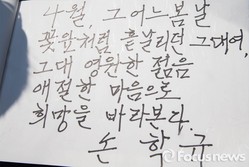 나월, 그어느봄날
꽃잎처럼 흩날리던 그대여,
그대 영원한 젊음
애절한 마음으로
희망을 바라보다.
손 학 규
Focusnews